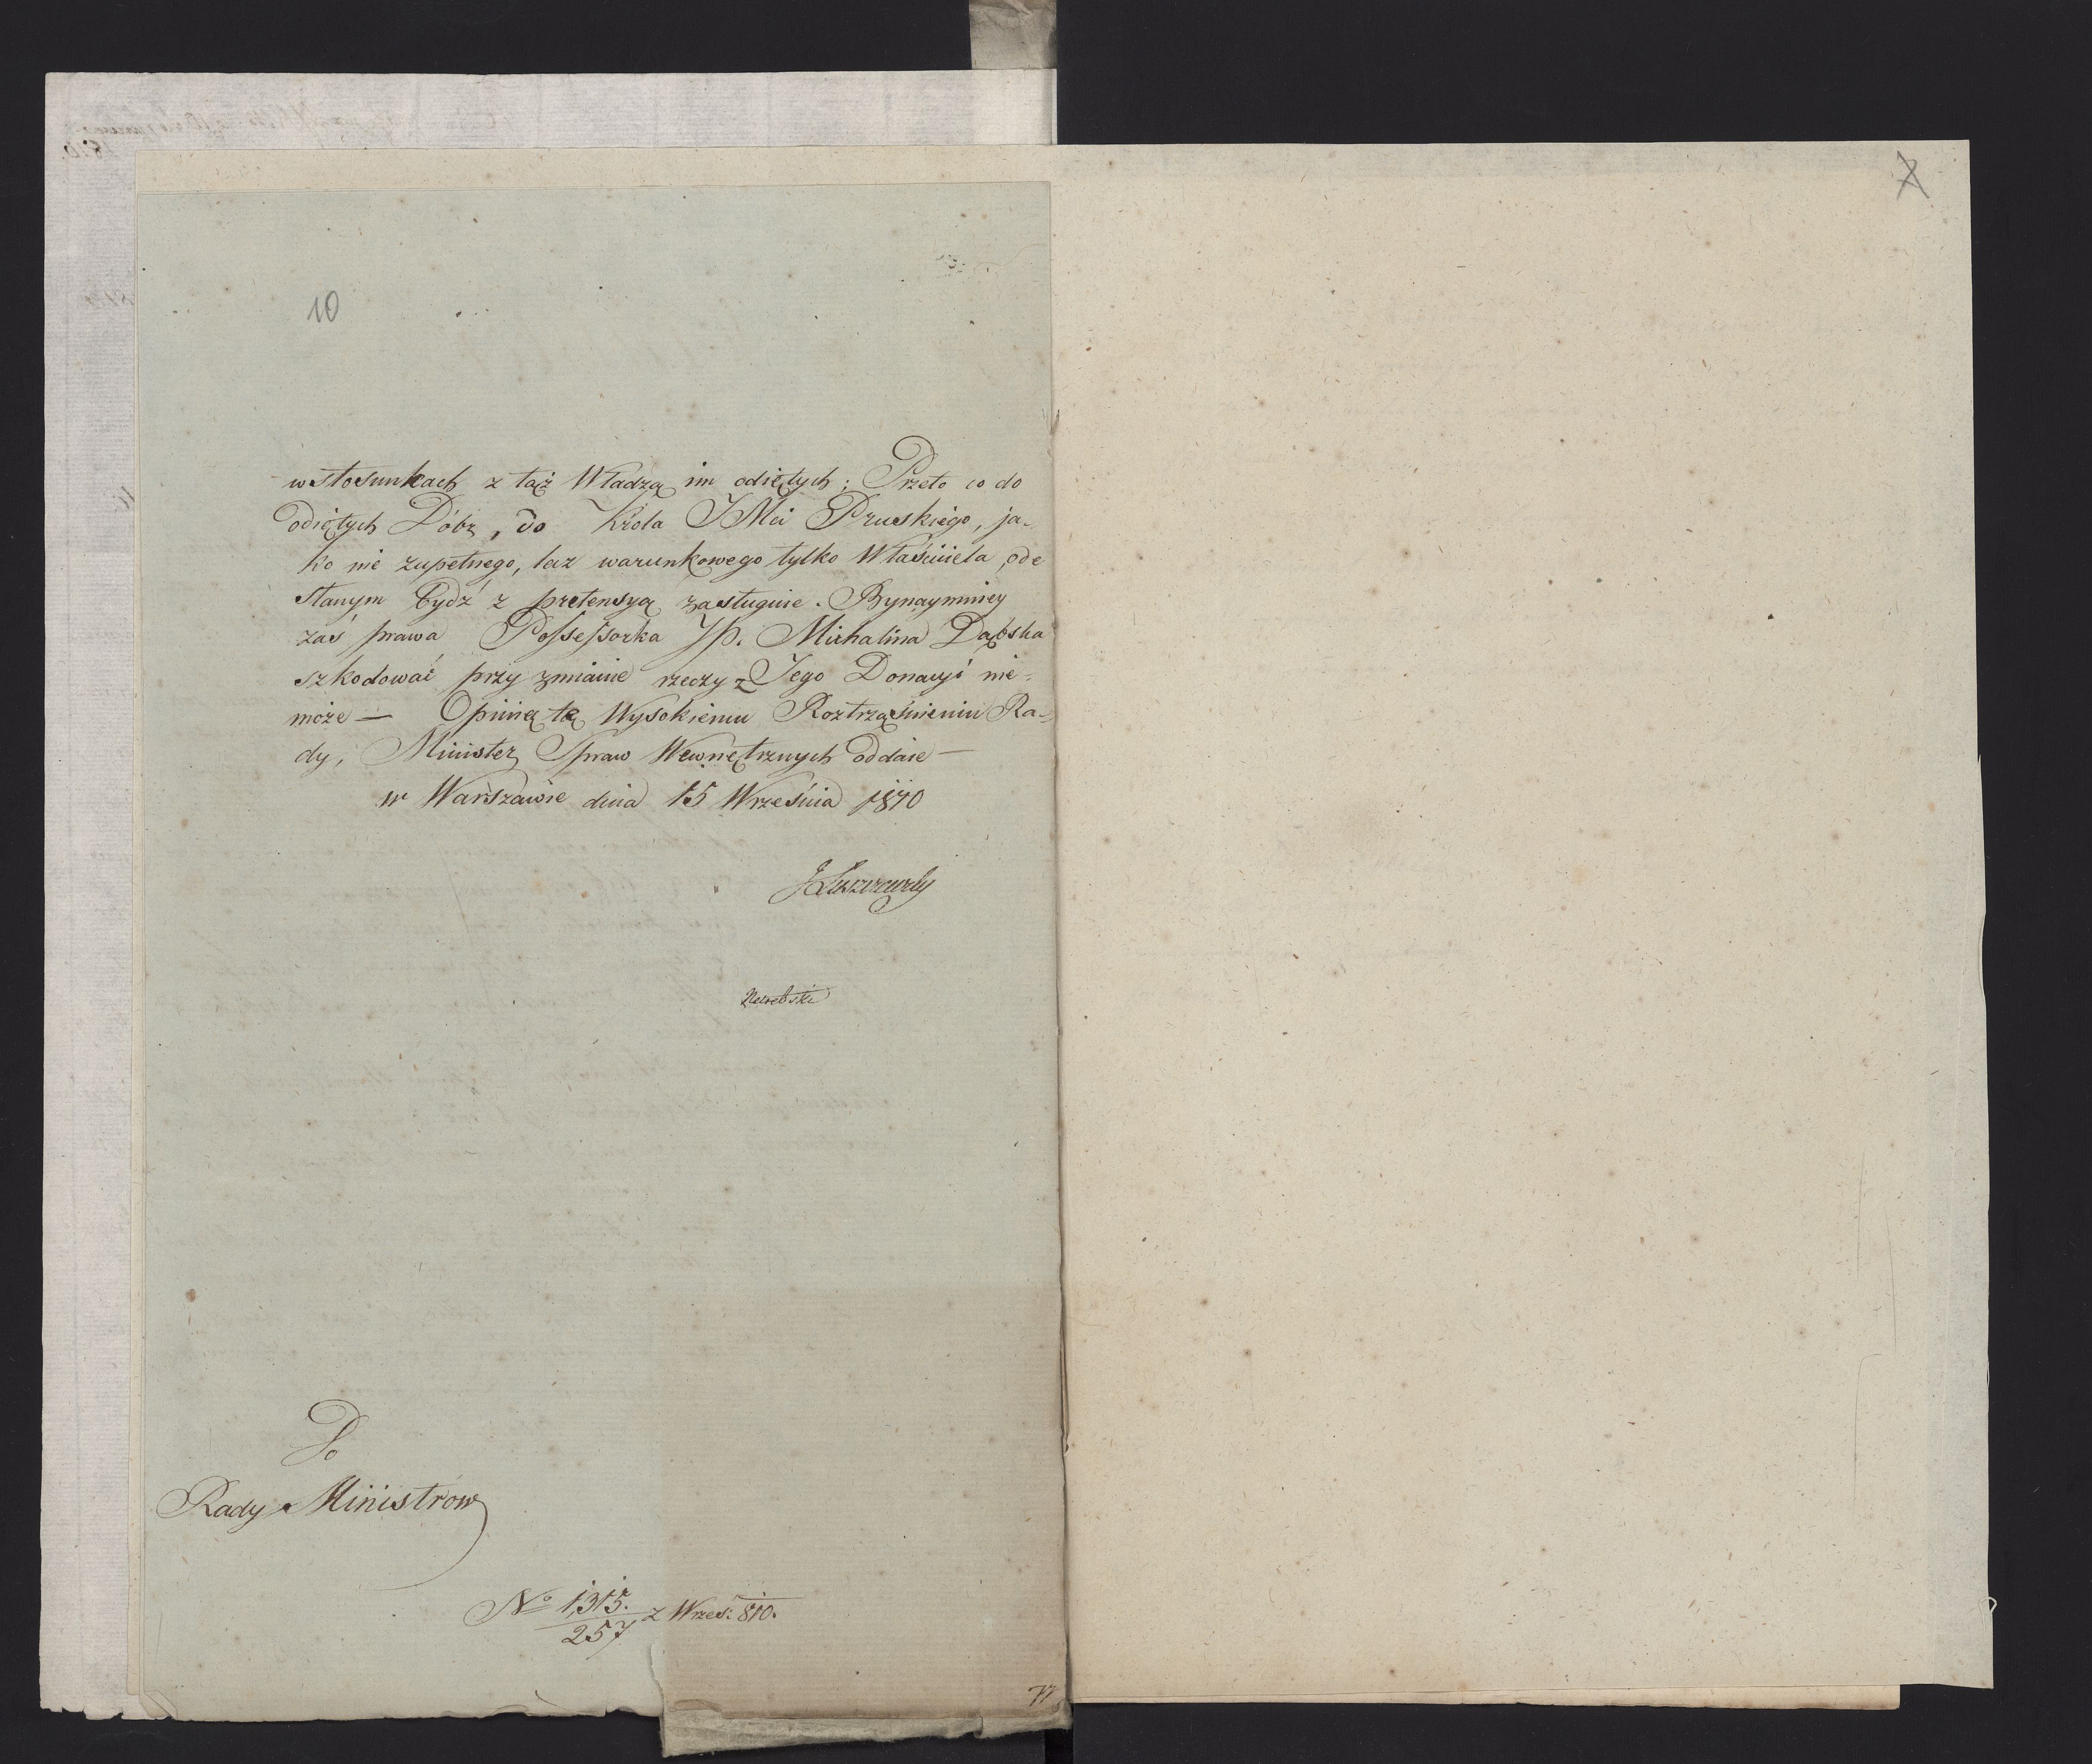 10
w stosunkach z tąż Władzą im odiętych; Przeto co do
odiętych Dóbr, do Króla JMci Pruskiego, ja-
ko nie zupełnego, lecz warunkowego tylko Właściciela, ode
słanym bydź z pretensyą zasługuie. Bynaymniey
zaś prawa Possessorka JP. Michalina Dąbska
szkodować przy zmianie rzeczy z Jego Donacyi nie-
może — Opinią tę Wysokiemu Roztrząśnieniu Ra-
dy, Minister Spraw Wewnętrznych oddaie —
w Warszawie dnia 15 Września 1810
J Łuszczewsky
Do
Rady Ministrow
No 1,315. z Wrześ: 810.
257
77